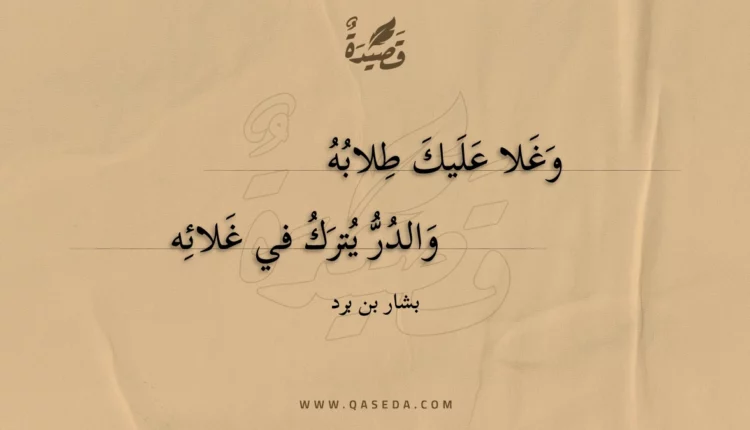 قَصِيدَةٌ
وَغَلا عَلَيكَ طِلابُهُ
وَالدُرُّ يُترَكُ في غَلائِه
بشار بن برد
WWW.QASEDA.COM